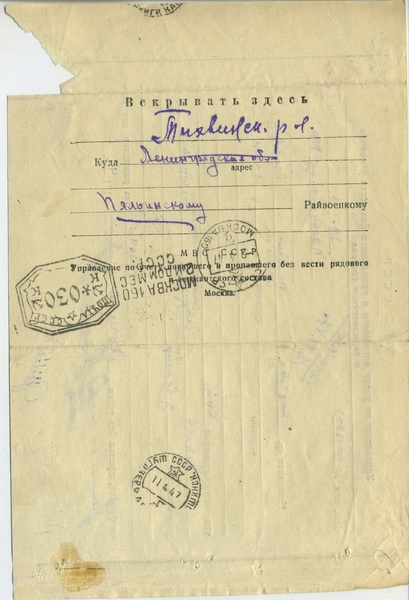 Вскрывать здесь
Тихвинск. р-н.
Куда Ленинградская обл
адрес
Пяльинскому Райвоенкому
МВС СССР
Управление по учету погибшего и пропавшего без вести рядового
и сержантского состава
Москва.
МОСКВА 160
СССР.
ПОЧТА СССР
030
К К
МОСКВА
ТИХВИН
СССР
11.4.47